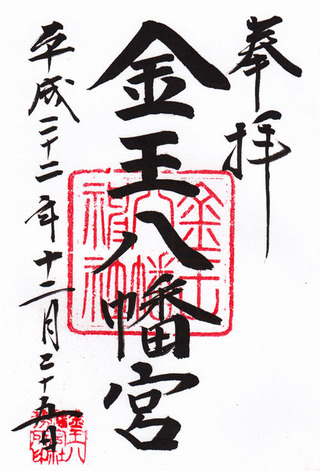 奉拝
金王八幡宮
平成二十二年十二月二十五日
金王
八幡
金王八
幡宮社
務所印